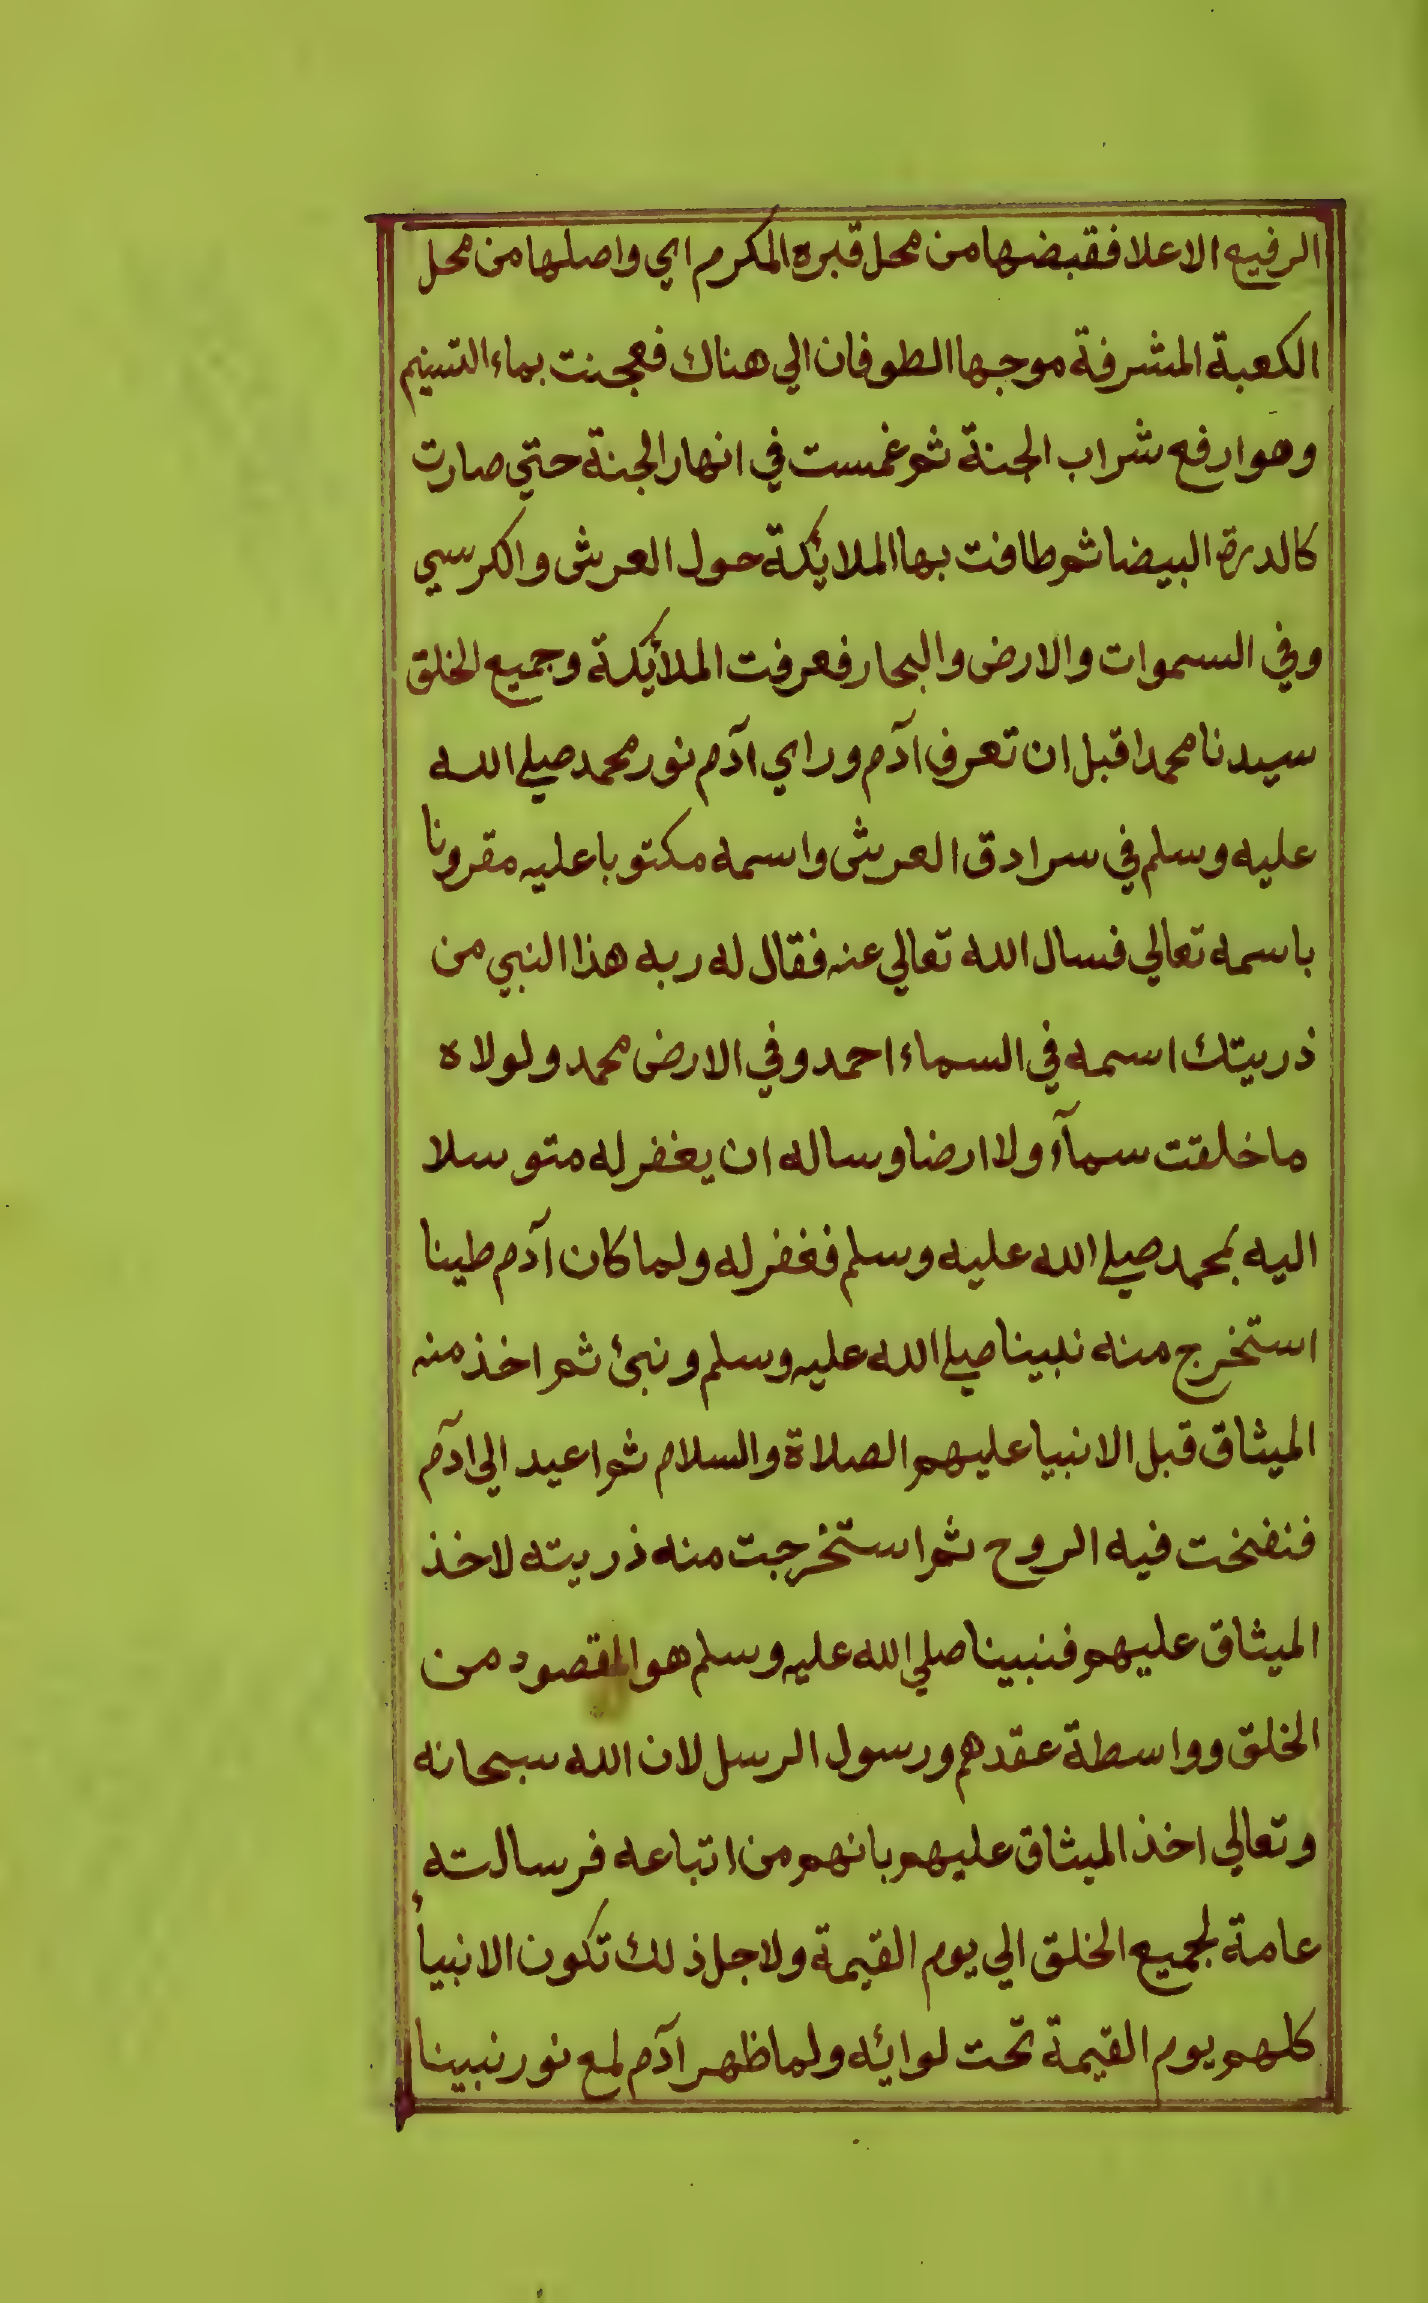 الرفيع الاعلا فقبضها من محل قبره المكرم اي واصلها من محل
الكعبة المشرفة موجها الطوفان الي هناك فعجنت بماء التسنيم
وهوارفع شراب الجنة ثم غمست في انهار الجنة حتي صارت
كالدرة البيضا ثم طافت بها الملائكة حول العرش والكرسي
وفي السموات والارض والبحار فعرفت الملائكة وجميع الخلق
سيدنا محمدا قبل ان تعرف آدم وراي آدم نور محمد صلي الله
عليه وسلم في سرادق العرش واسمه مكتوبا عليه مقرونا
باسمه تعالي فسال الله تعالي عنه فقال له ربه هذا النبي من
ذريتك اسمه في السماء احمد وفي الارض محمد ولولاه
ما خلقت سمآء ولا ارضا وساله ان يغفر له متوسلا
اليه بمحمد صلي الله عليه وسلم فغفر له ولما كان آدم طينا
استخرج منه نبينا صلي الله عليه وسلم ونبئ ثم اخذ منه
الميثاق قبل الانبيا عليهم الصلاة والسلام ثم اعيد الي ادٓم
فنفخت فيه الروح ثم استخرجت منه ذريته لاخذ
الميثاق عليهم فنبينا صلي الله عليه وسلم هو المقصود من
الخلق وواسطة عقدهم ورسول الرسل لان الله سبحانه
وتعالي اخذ الميثاق عليهم بانهم من اتباعه فرسالته
عامة لجميع الخلق الي يوم القيمة ولاجل ذلك تكون الانبيأ
كلهم يوم القيمة تحت لوائه ولما ظهر آدم لمع نور نبينا